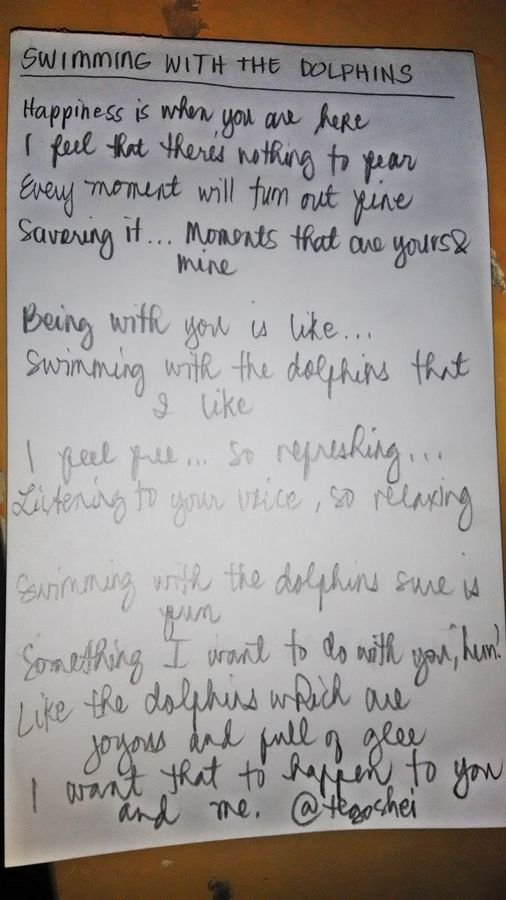 SWIMMING WITH THE DOLPHINS
Happiness is when you are here
I feel that there's nothing to fear
Every moment will turn out fine
Savering it... Moments that are yours &
mine
Being with you is like...
Swimming with the dolphins that
I like
I feel free... so refreshing...
Listening to your voice, so relaxing
Swimming with the dolphins sure is
fun
Something I want to do with you, hun!
Like the dolphins which are
joyous and full of glee
I want that to happen to you
and me. @tegoshei